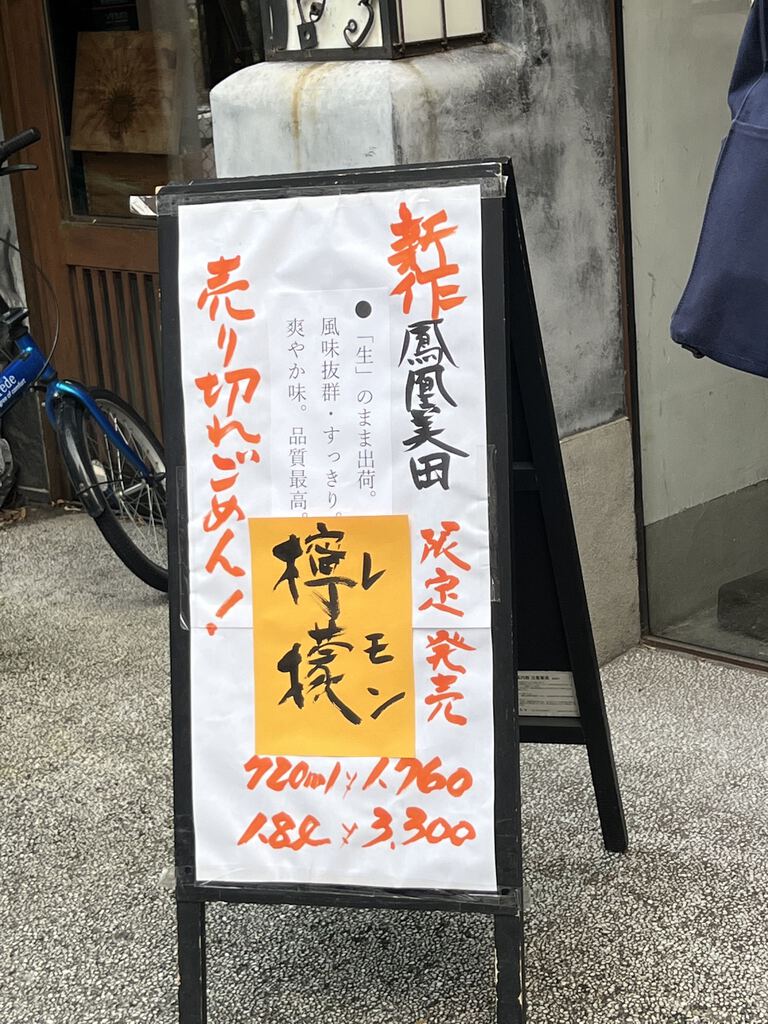 新作
鳳凰美田
限定発売
●「生」のまま出荷。
風味抜群・すっきり。
爽やか味。品質最高。
檸檬
レモン
売り切れごめん！
720ml ¥1.760
1.8ℓ ¥3.300